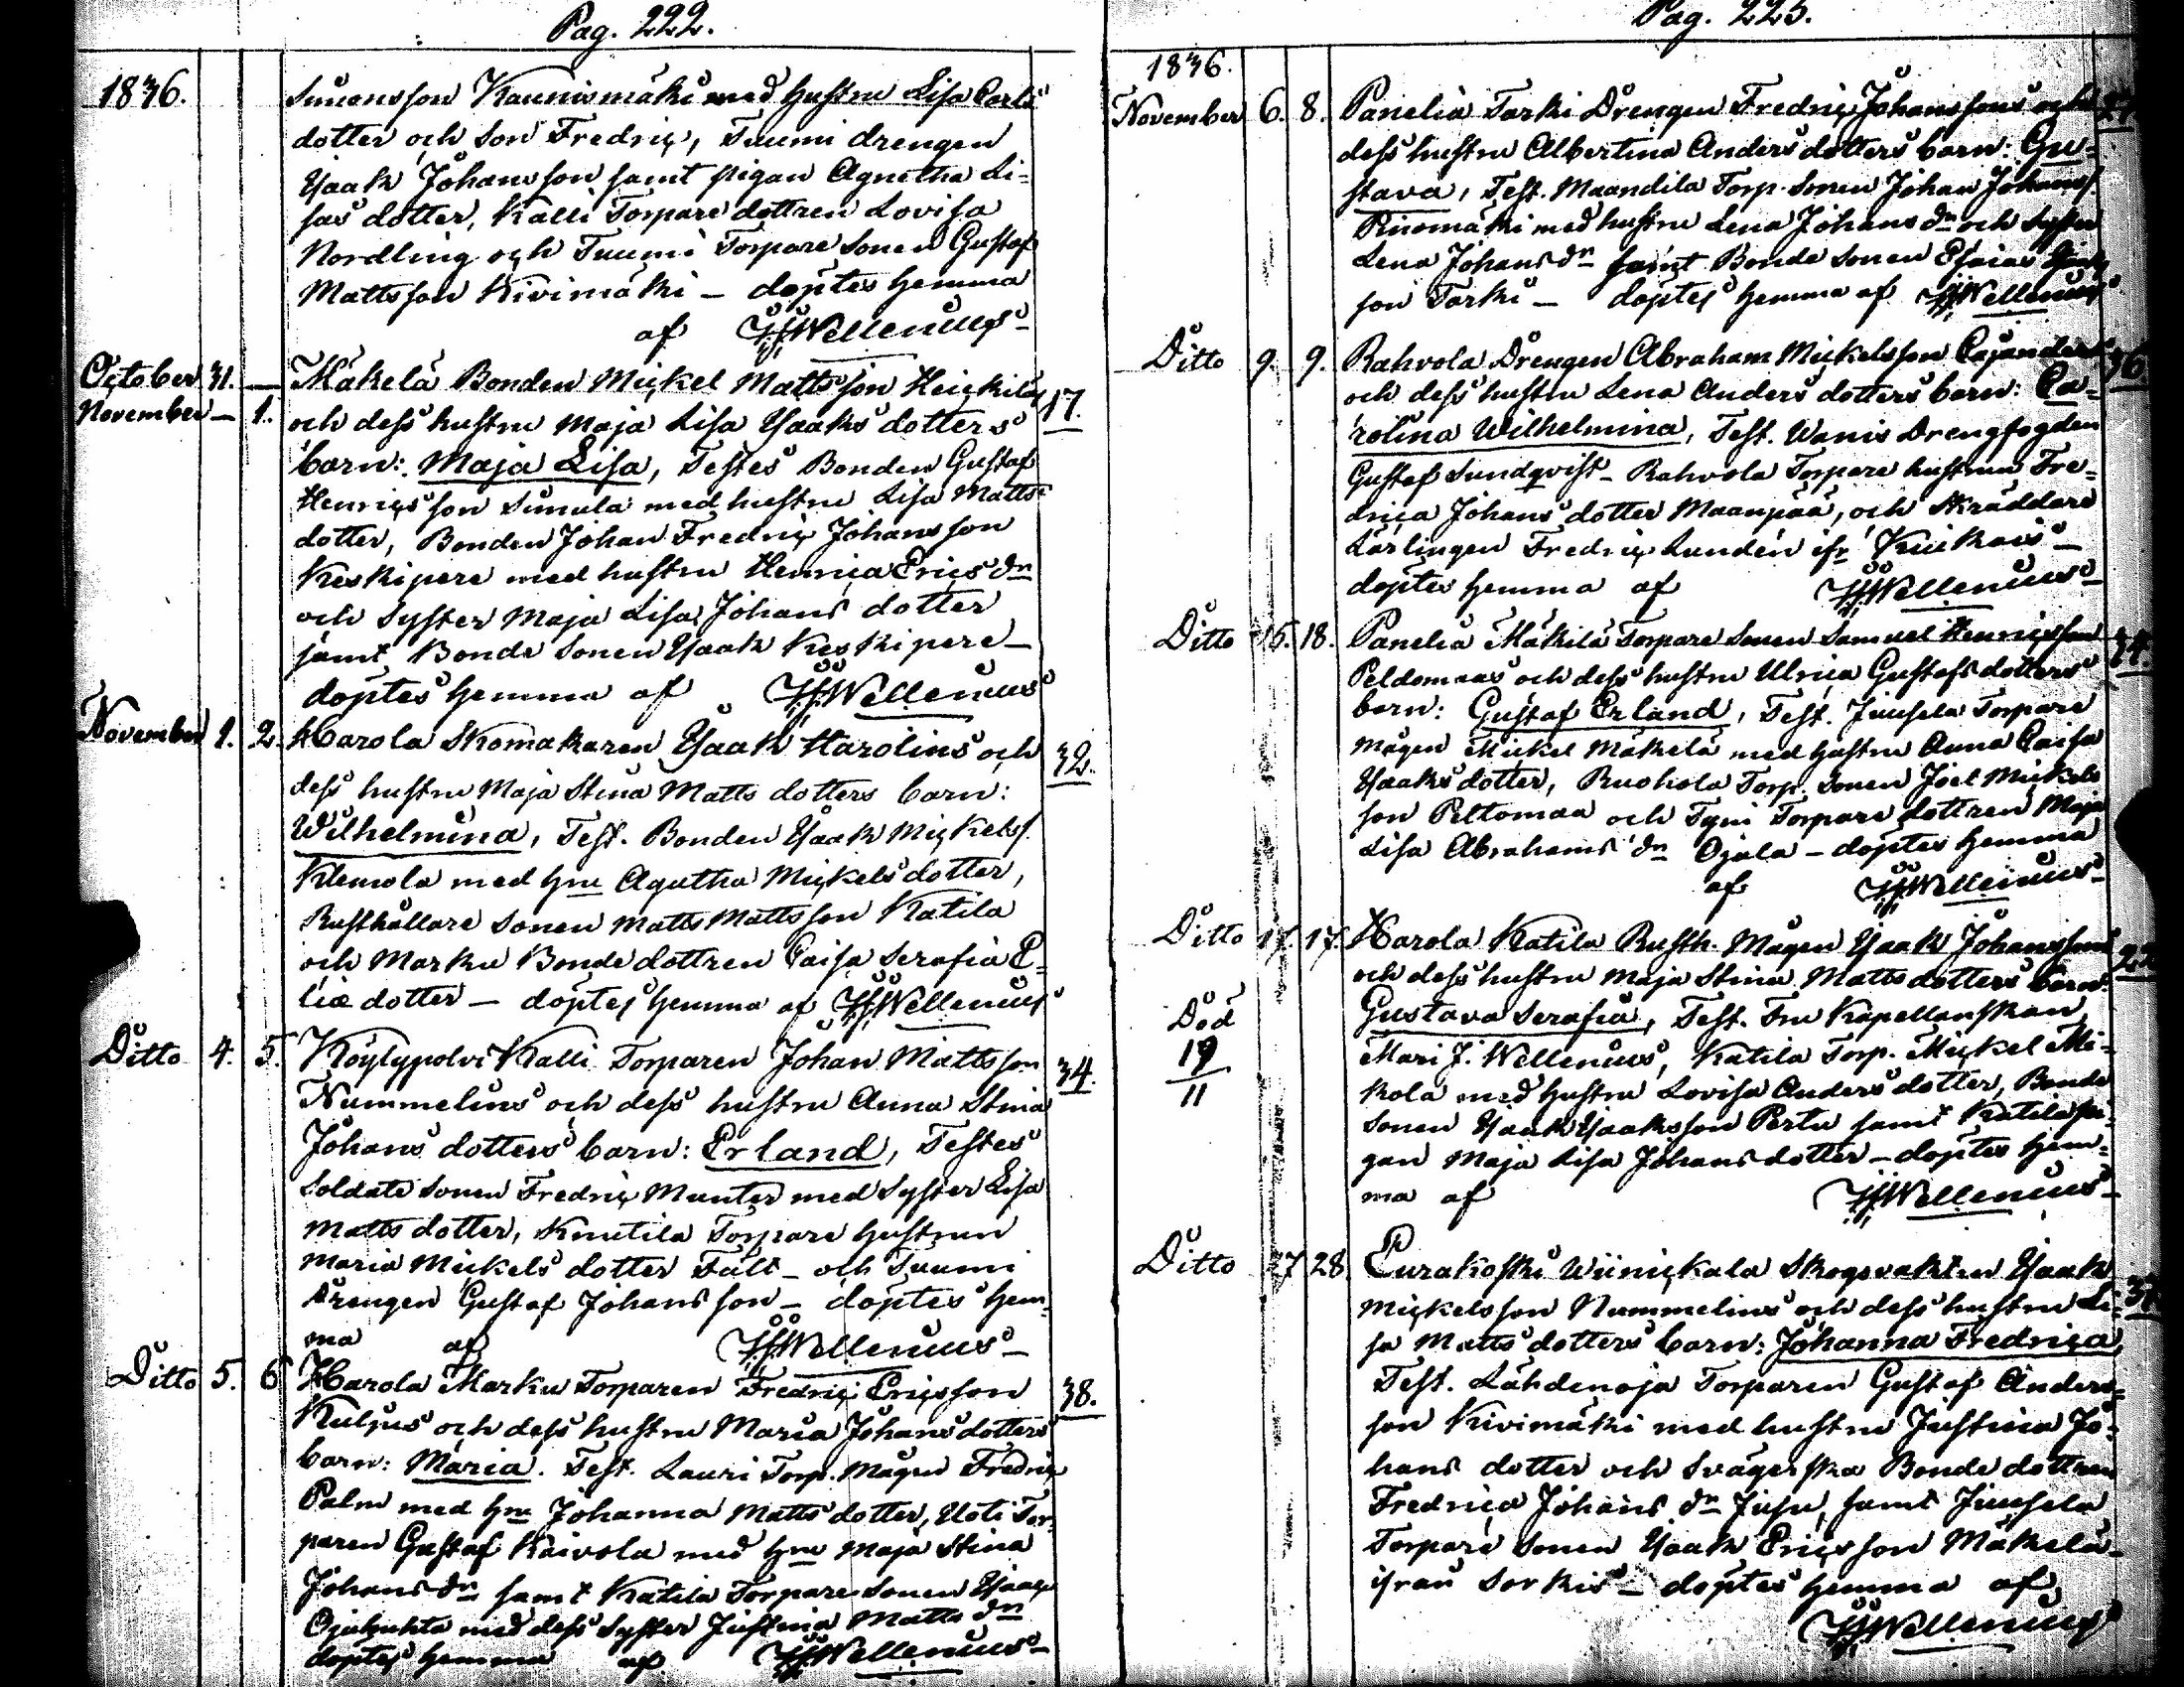 Pag. 222.
1836.
Simonsson Kaunismäki med hustru Lisa Carls
dotter och Son Fredric, Tuumi drengen
Isaak Johansson samt pigan Agnetha Li-
sas dotter, Kalli Torpare dottren Lovisa
Nordling och Tuumi Torpare Sonen Gustaf
Mattsson Kivimäki – döptes hemma
af Wellenius
October 31. —
November — 1.
Mäkelä Bonden Mickel Mattsson Heickilä 17.
och dess hustru Maja Lisa Isaaks dotters
barn: Maja Lisa, Testes Bonden Gustaf
Henricsson Sunula med hustru Lisa Matts
dotter, Bonden Johan Fredric Johansson
Keskipere med hustru Henrica Erics dr
och Syster Maja Lisa Johans dotter
samt Bonde Sonen Isaak Keskipere –
döptes hemma af Wellenius
November 1. 2. Harola Skomakaren Isaak Harolins och 32.
dess hustru Maja Stina Matts dotters barn:
Wilhelmina, Test. Bonden Isaak Mickelss.
Klemola med hru Agatha Mickels dotter,
Rusthållare Sonen Matts Mattsson Katila
och Marku Bonde dottren Caisa Serafia E-
liæ dotter – döptes hemma af Wellenius
Ditto 4. 5. Köylypolvi Kalli Torparen Johan Mattsson 34.
Nummelins och dess hustru Anna Stina
Johans dotters barn: Erland, Testes
Soldate Sonen Fredric Munter med Syster Lisa
Matts dotter, Knutila Torpare hustrun
Maria Mickels dotter Fält – och Tuumi
Drengen Gustaf Johansson – döptes hem-
ma af Wellenius
Ditto 5. 6. Harola Marku Torparen Fredric Ericsson 38.
Kuljus och dess hustru Maria Johans dotters
barn: Maria. Test. Lauri Torp. Mågen Fredric
Palm med hru Johanna Matts dotter, Uoti Tor-
paren Gustaf Raivola med hru Maja Stina
Johans dr samt Katila Torpare Sonen Isaac
Ojakukta med dess Syster Justina Matts dr
döptes hemma af Wellenius
Pag. 223.
1836.
November 6. 8. Panelia Tarki Drengen Fredric Johanssons och
dess hustru Albertina Anders dotters barn: Gu-
stava, Test. Maandila Torp. Sonen Johan Johanss.
Riiomäki med hustru Lena Johans dr och Syster
Lena Johans dr samt Bonde Sonen Esaias
son Tarki – döptes hemma af Wellenius
Ditto 9. 9. Rahvola Drengen Abraham Mickelsson Cajanders 36.
och dess hustru Lena Anders dotters barn: Ca-
rolina Wilhelmina, Test. Wanis Drengfogden
Gustaf Sundqvist – Rahvola Torpare hustrun Fre-
drica Johans dotter Maanpää, och Skräddare
Lärlingen Fredric Lundén ifr Kiukais –
döptes hemma af Wellenius
Ditto 15. 18. Panelia Mäkilä Torpare Sonen Samuel Henricsson 34.
Peldomaas och dess hustru Ulrica Gustafs dotters
barn: Gustaf Erland, Test. Juusela Torpare
Mågen Mickel Mäkelä med hustru Anna Caisa
Isaaks dotter, Ruohola Torp. Sonen Joel Mickels
son Peltomaa och Tyni Torpare dottren Maja
Lisa Abrahams dr Ojala – döptes hemma
af Wellenius
Ditto 17. 17. Harola Katila Rusth. Mågen Isaak Johanssons 22
och dess hustru Maja Stina Matts dotters barn:
Gustava Serafia, Test. Fru Kapellanskan
Död
19
11
Mari J. Wellenius, Katila Torp. Mickel Mi-
kola med hustru Lovisa Anders dotter, Bonde
Sonen Isaak Isaaksson Pertu samt Katila pi-
gan Maja Lisa Johans dotter – döptes hem-
ma af Wellenius
Ditto 27 28. Eurakoski Wiinickala Skogsvakten Isaak
Mickelsson Nummelins och dess hustru Li-
sa Matts dotters barn: Johanna Fredrica
Test. Lähdenoja Torparen Gustaf Anders-
son Kivimäki med hustru Justina Jo-
hans dotter och Svägerska Bonde dottren
Fredrica Johans dr Juju, samt Juusela
Torpare Sonen Isaak Ericsson Mäkelä
ifrån Sorkis – döptes hemma af
Wellenius